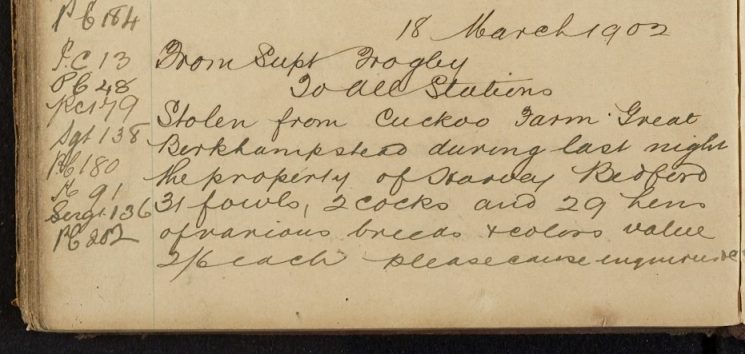 PC 184
18 March 1902
P.C 13
From Supt Frogley
PC 48
To all Stations
PC 179
Stolen from Cuckoo Farm Great
Sgt 138
Berkhampstead during last night
PC 180
the property of Harvey Bedford
91
31 fowls, 2 cocks and 29 hens
Sergt. 136
of various breeds & colors value
PC 202
2/6 each please cause enquiries